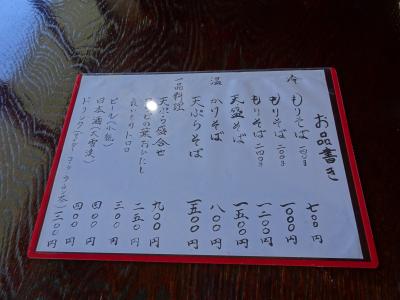 お品書き
冷 もりそば 七〇〇円
もりそば 二〇〇g 一〇〇〇円
もりそば 一二〇〇円
天盛そば 一五〇〇円
温 かけそば 八〇〇円
天ぷらそば 一五〇〇円
一品料理
天ぷら盛合せ 九〇〇円
の葉おひたし 二五〇円
トロロ 三〇〇円
ビール(小瓶) 四〇〇円
日本酒(大雪渓) 四〇〇円
ドリンク(サイダー コーラ ウーロン茶) 二〇〇円